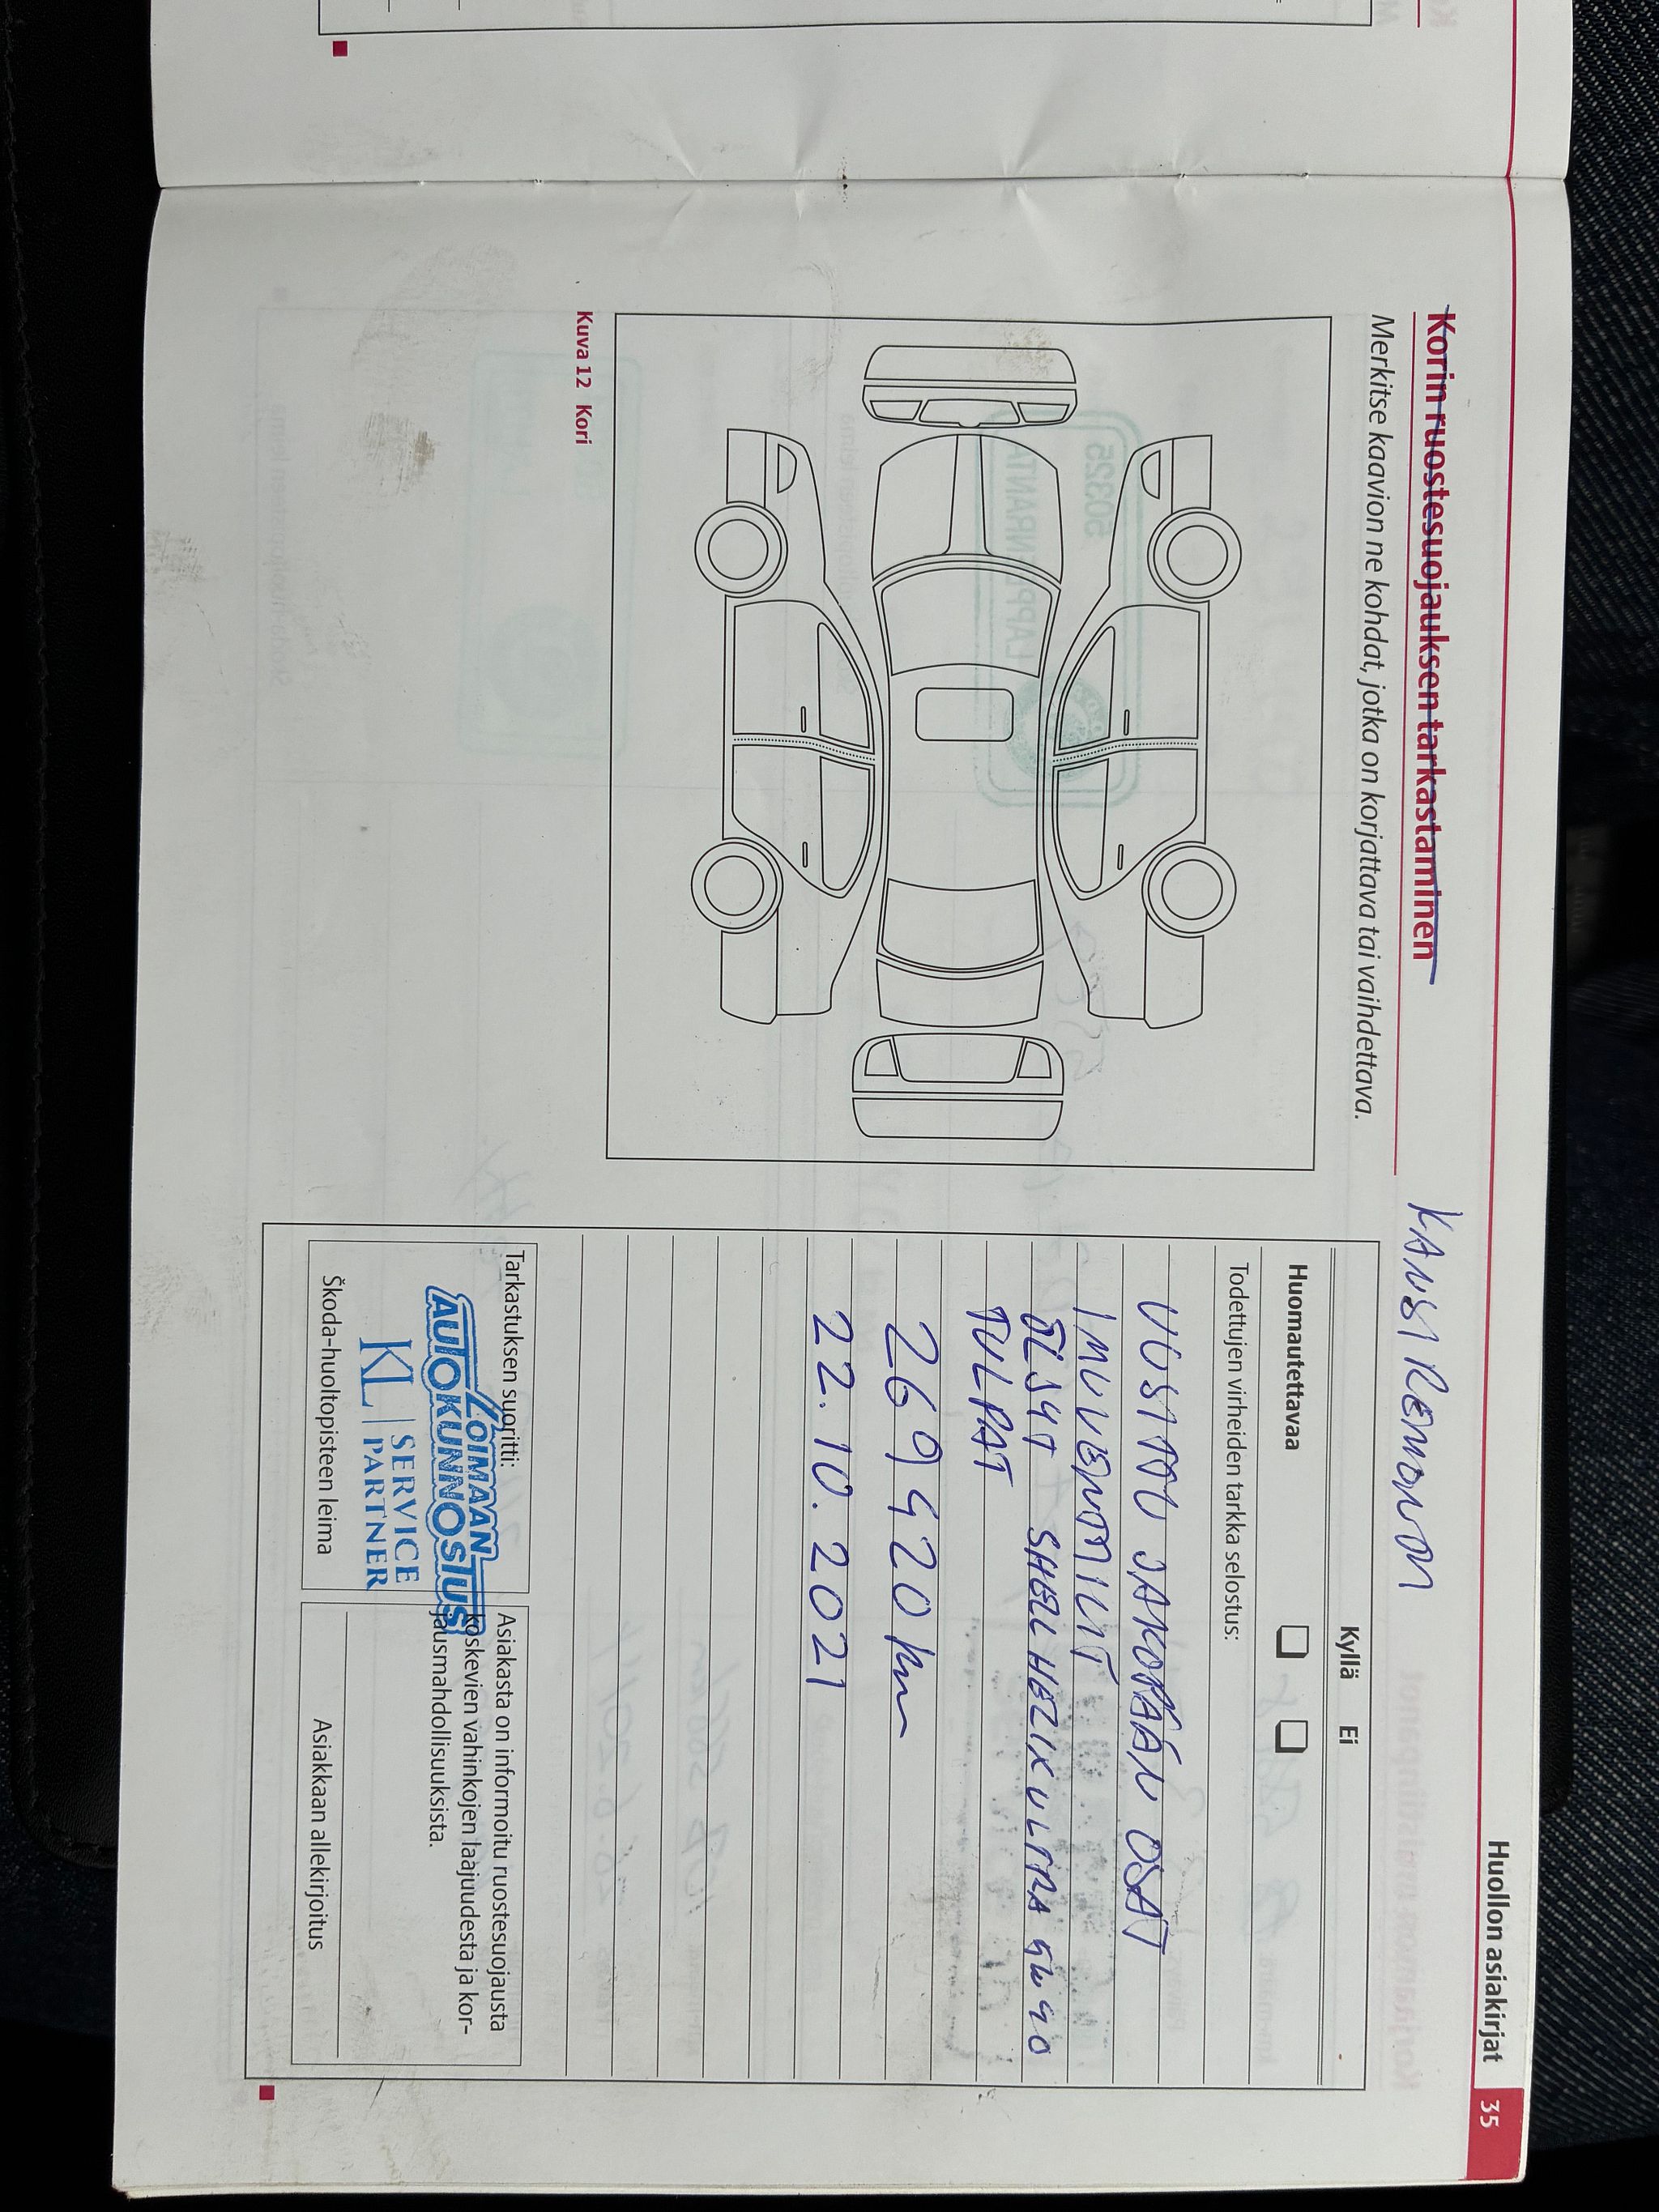 Huollon asiakirjat
35
Korin ruostesuojauksen tarkastaminen
KANSI REMONTTI
Merkitse kaavion ne kohdat, jotka on korjattava tai vaihdettava.
Kuva 12 Kori
Kyllä Ei
Huomautettavaa
Todettujen virheiden tarkka selostus:
JAKOPÄÄN OSAT
IMUVENTTIILIT
ÖLJYT SHELL HELIX ULTRA 5W40
TULPAT
269420 km
22.10.2021
Tarkastuksen suoritti:
LOIMAAN
AUTOKUNNOSTUS
KL SERVICE
PARTNER
Škoda-huoltopisteen leima
Asiakasta on informoitu ruostesuojausta
koskevien vahinkojen laajuudesta ja kor-
jausmahdollisuuksista.
Asiakkaan allekirjoitus